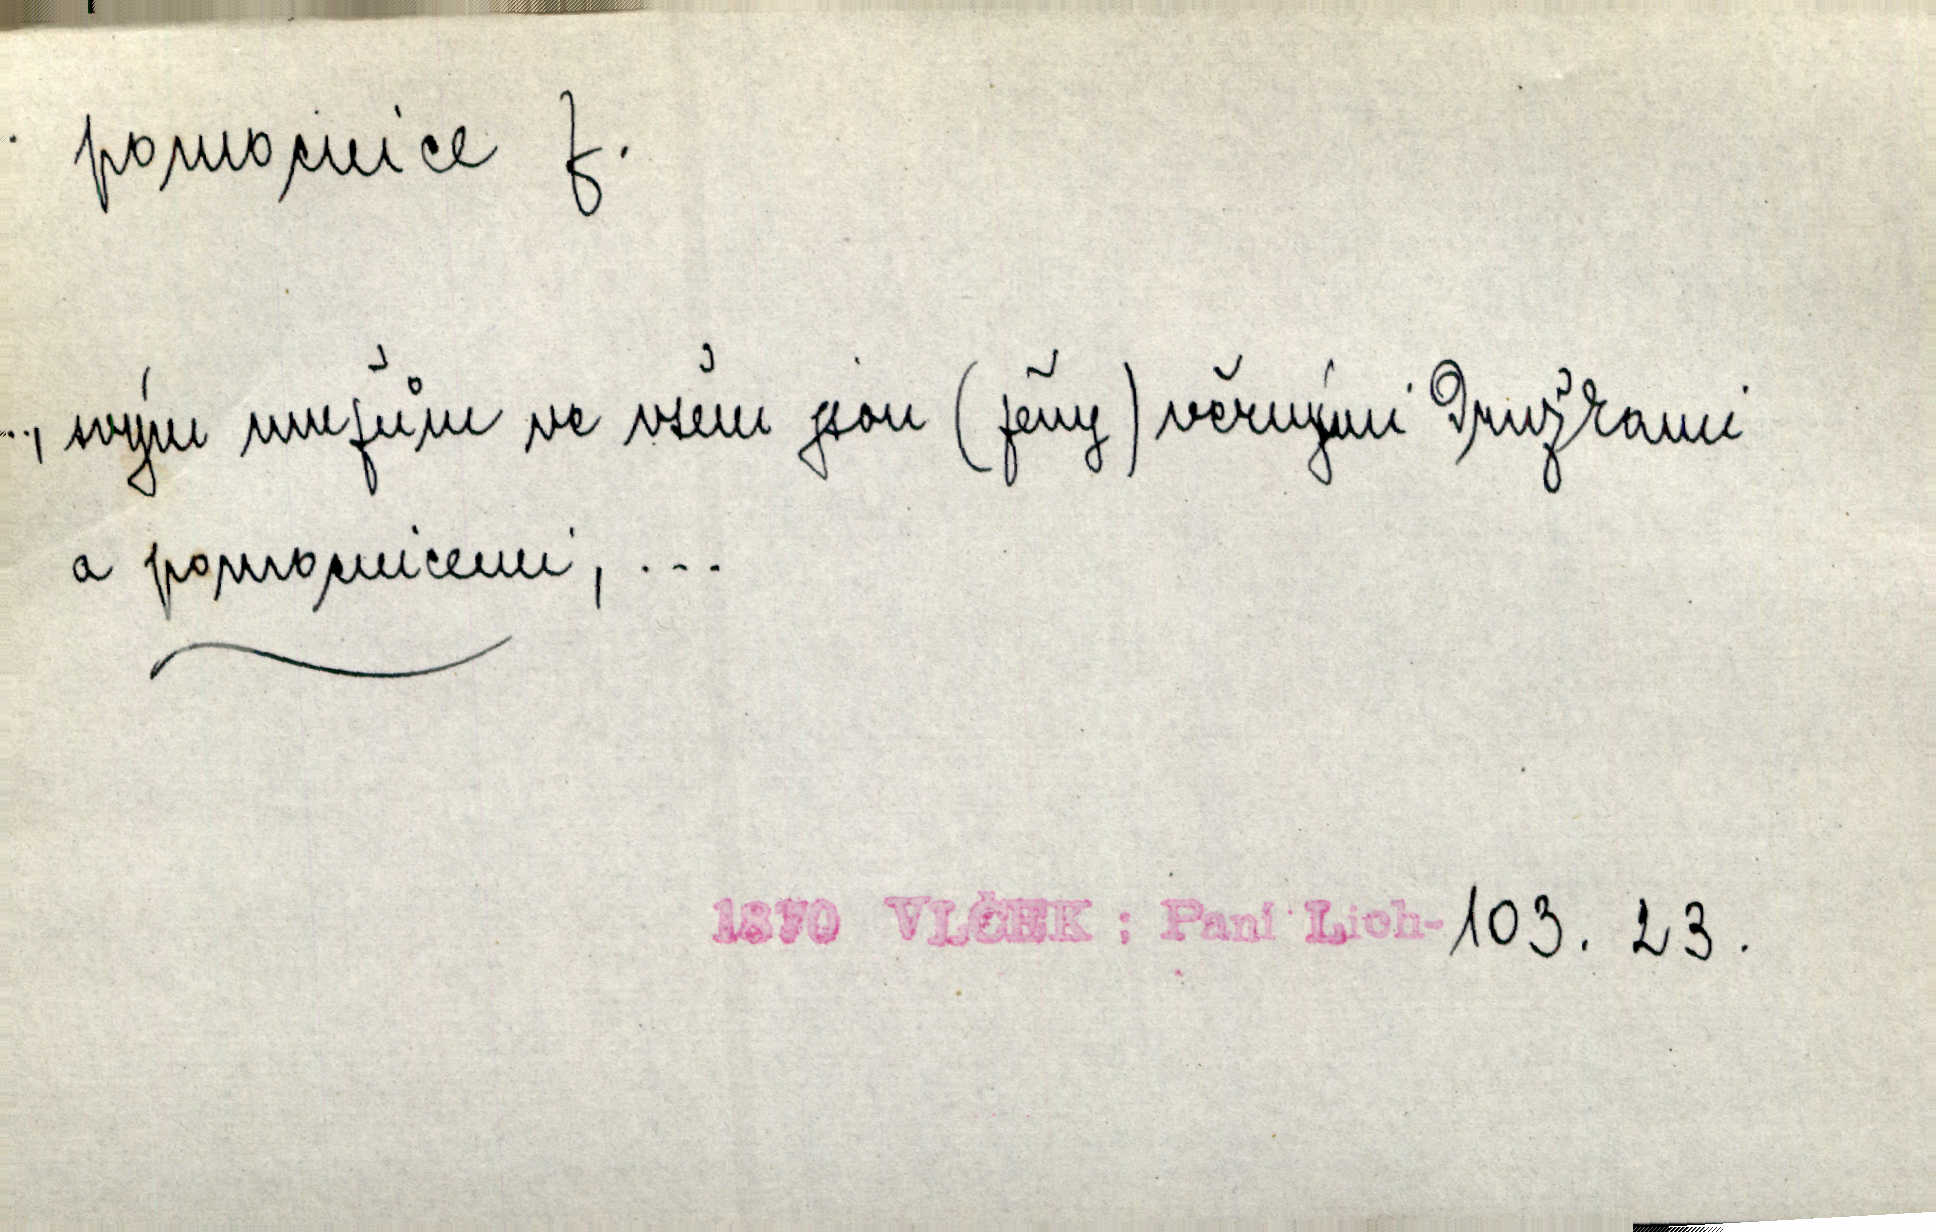 pomocnice f.
..., svým mužům ve všem jsou (ženy) věrnými družkami
a pomocnicemi, ...
1870 VLČEK : Paní Lich- 103. 23.